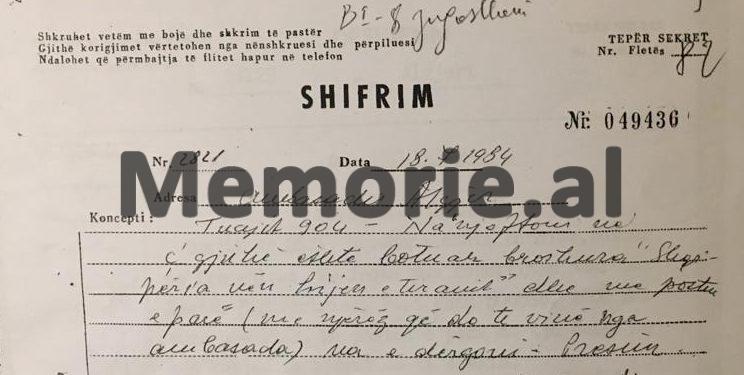 BI-8 Jugosllavi
Shkruhet vetëm me bojë dhe shkrim të pastër
Gjithë korigjimet vërtetohen nga nënshkruesi dhe përpiluesi
Ndalohet që përmbajtja të flitet hapur në telefon
TEPËR SEKRET
Nr. Fletës
SHIFRIM
Nr. 049436
Nr. 2821 Data 18. 1984
Memorie.al
Adresa Ambasadës Algjer
Koncepti: Tuajit 904 – Na njoftoni në
ç'gjuhë është botuar broshura "Shqi-
përia nën hijen e tiranit" dhe me postën
e parë (me njerëz që do të vinë nga
ambasada) na e dërgoni – Presim